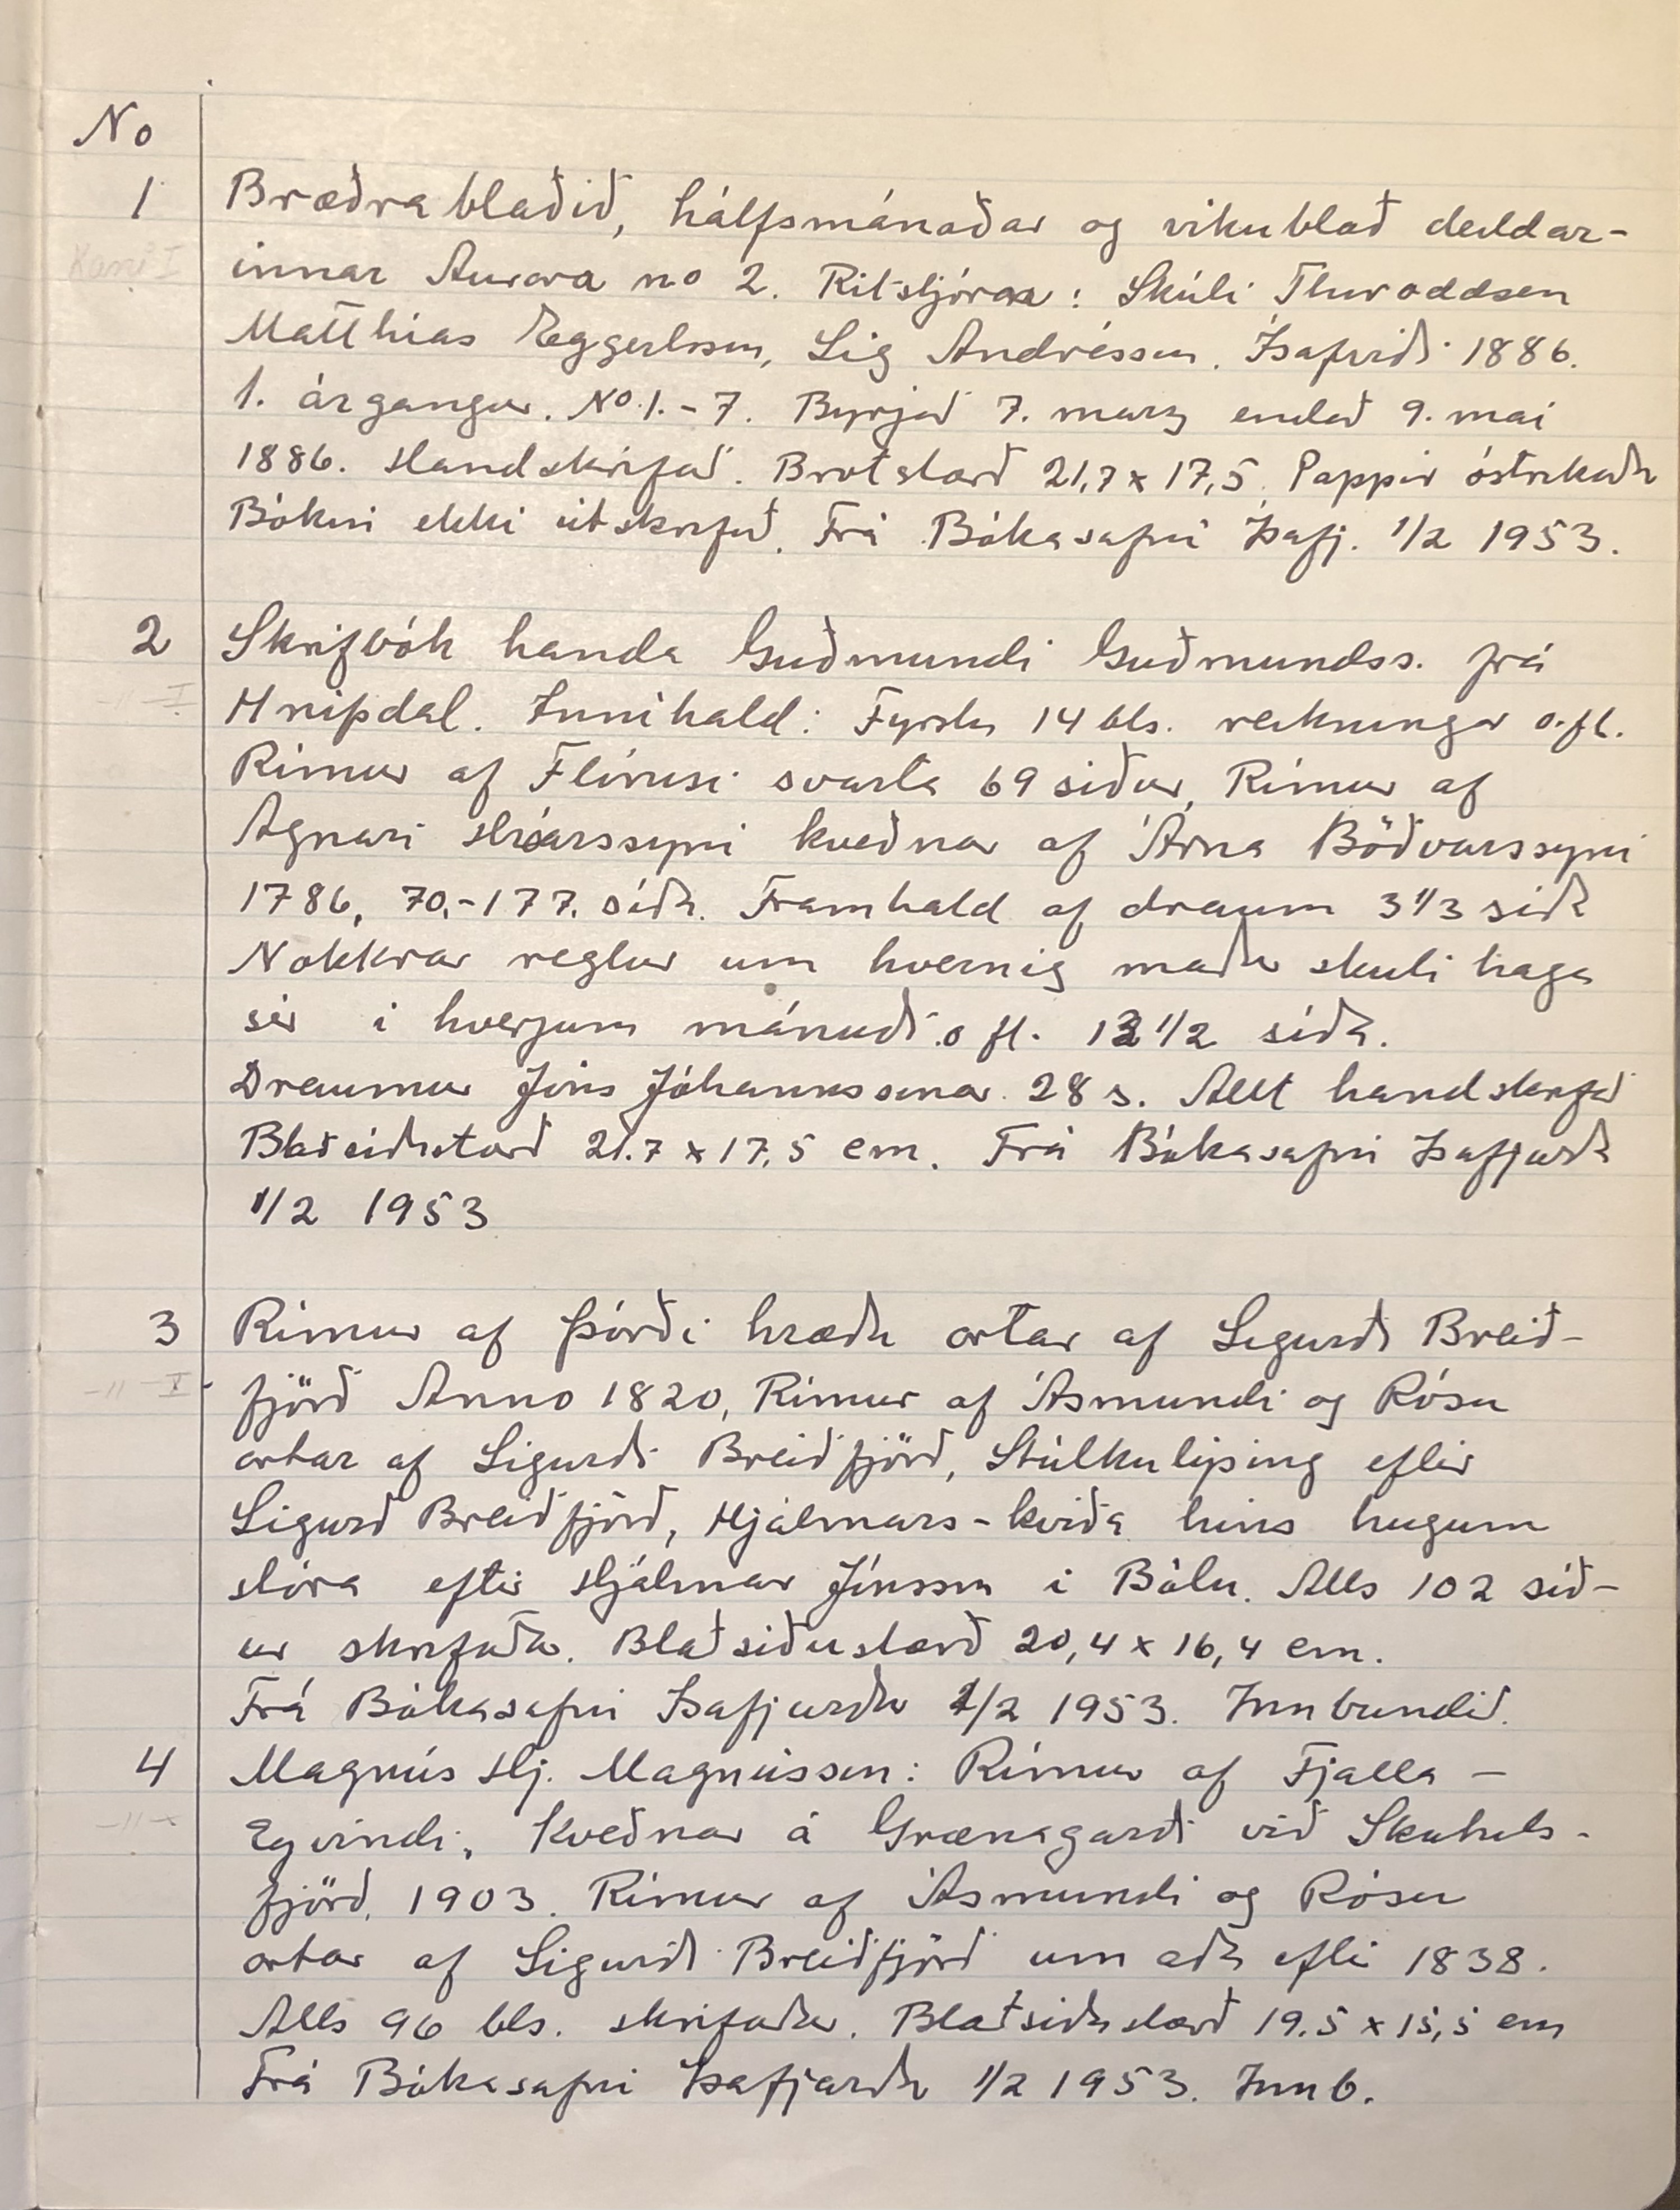 No
1 Bræðrablaðið, hálfsmánaðar og vikublað deildar-
Kassi I
innar Aurora no 2. Ritstjórar: Skúli Thoroddsen
Matthias Eggertsson, Sig Andrésson. Ísafirði 1886.
1. árgangur. No. 1.-7. Byrjað 7. marz endað 9. mai
1886. Handskrifað. Brotstærð 21,7 x 17,5. Pappír óstrikaður
Bókin ekki útskrifuð. Frá Bókasafni Ísafj. 1/2 1953.
2 Skrifbók handa Guðmundi Guðmundss. frá
-"- I
Hnífsdal. Innihald: Fyrstu 14 bls. reikningar o.fl.
Rímur af Flóresi svarta 69 síður, Rímur af
Agnari Hróarssyni kveðnar af Árna Böðvarssyni
1786, 70.-177. síðu. Framhald af draum 3 1/3 síðu
Nokkrar reglur um hvernig maður skuli haga
sér í hverjum mánuði o fl. 12 1/2 síðu.
Draumur Jóns Jóhannssonar 28 s. Allt handskrifað
Blaðsíðustærð 21.7 x 17,5 cm. Frá Bókasafni Ísafjarðar
1/2 1953
3 Rímur af Þórði hræðu ortar af Sigurði Breið-
-"- I
fjörð Anno 1820, Rímur af Ásmundi og Rósu
ortar af Sigurði Breiðfjörð, Stúlkulýsing eftir
Sigurð Breiðfjörð, Hjálmars-kviða hins hugum
stóra eftir Hjálmar Jónsson í Bólu. Alls 102 síð-
ur skrifaðar. Blaðsíðustærð 20,4 x 16,4 cm.
Frá Bókasafni Ísafjarðar 1/2 1953. Innbundið.
4 Magnús Hj. Magnússon: Rímur af Fjalla-
-"-
Eyvindi, kveðnar á Grænagarði við Skutuls-
fjörð, 1903. Rímur af Ásmundi og Rósu
ortar af Sigurði Breiðfjörð um eða eftir 1838.
Alls 96 bls. skrifaðar. Blaðsíðustærð 19.5 x 15,5 cm
Frá Bókasafni Ísafjarðar 1/2 1953. Innb.